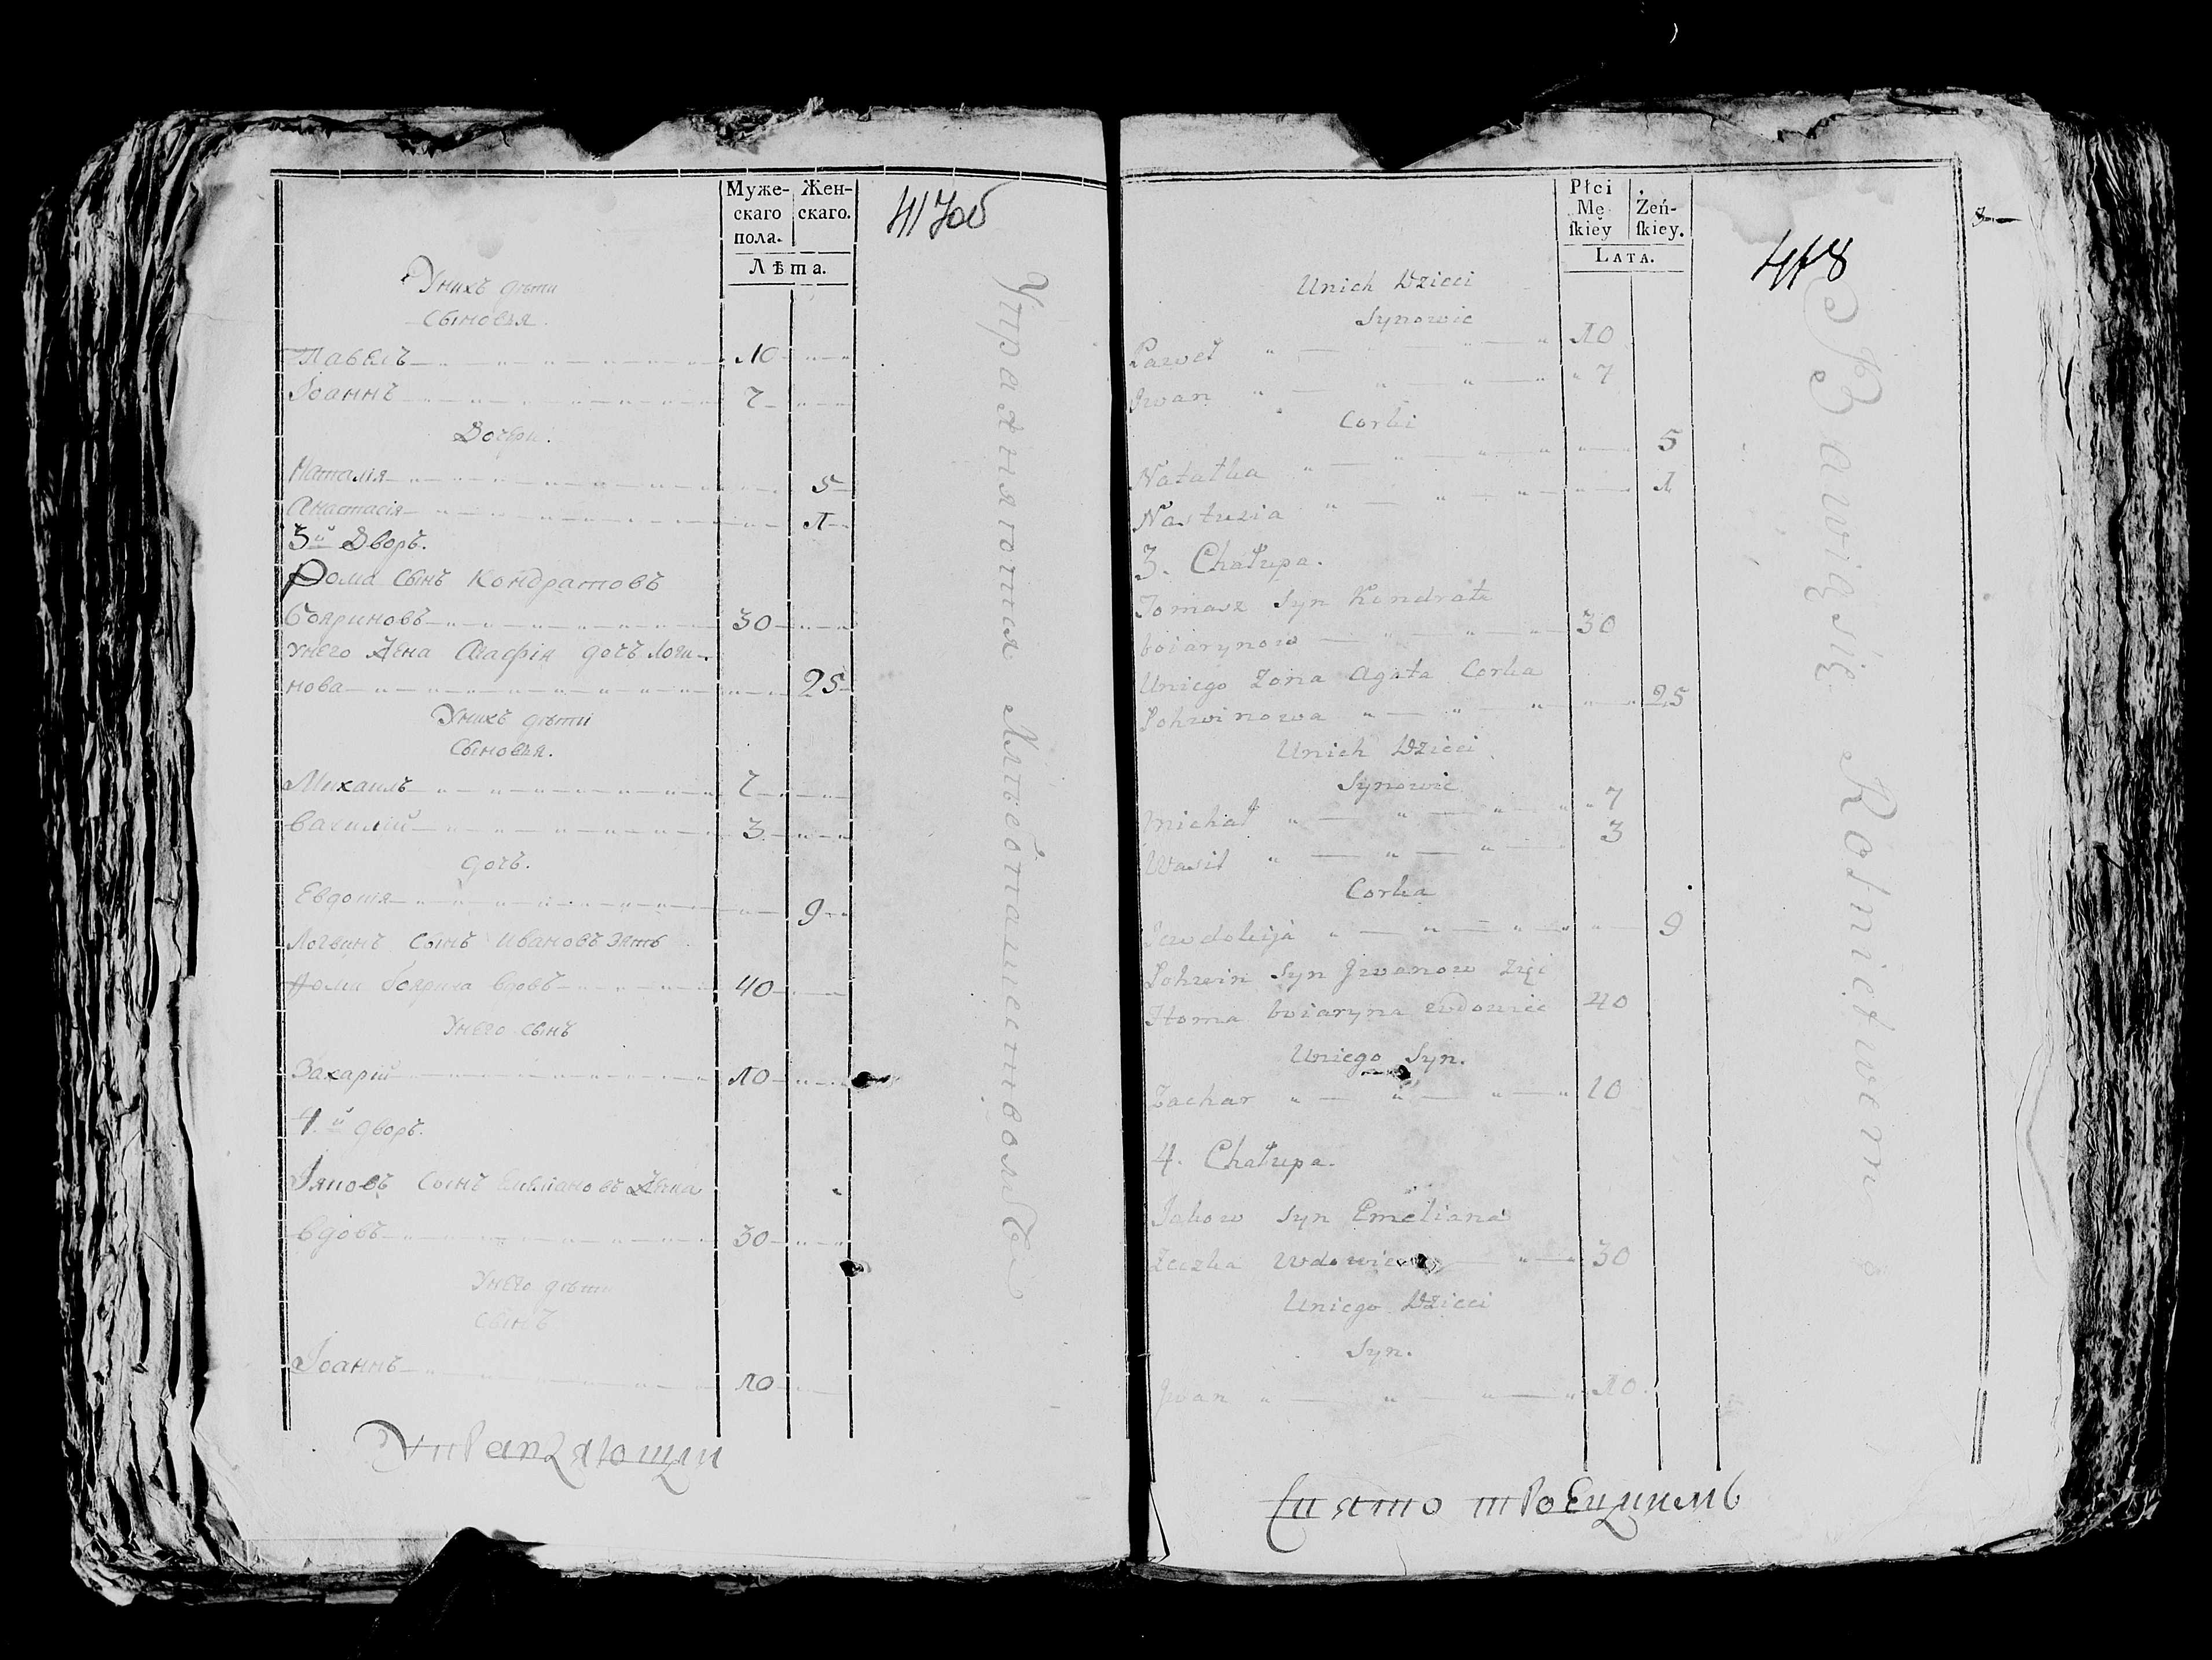 Муже-
скаго
пола.
Жен-
скаго.
Лѣта.
417об
Унихъ дѣти
Сыновья.
Павелъ 10
Іоаннъ 7
Дочери.
Наталія 5
Анастасія 1
3й Дворъ.
Фома Сынъ Кондратовъ
Бояриновъ 30
Унего Жена Агафія дочь Логи-
нова 25
Унихъ дѣти
Сыновья.
Михаилъ 7
Василій 3
дочь.
Евдокія 9
Логвинъ Сынъ Ивановъ Зять
Фомы боярина вдовъ 40
Унего сынъ
Захарій 10
4й дворъ.
Іяковъ Сынъ Емелиановъ
вдовъ 30
Унего дѣти
Сынъ
Іоаннъ 10
Упражняются Хлѣбопашествомъ
Płci
Mę
skiey
Żeń-
skiey.
LATA.
418
Unich Dzieci
Synowie
Paweł 10
Jwan 7
Corki
Natałka 5
Nastuzia 1
3. Chałupa.
Tomasz Syn Kondrata
boiarynow 30
Uniego Zona Agata Corka
Lohwinowa 25
Unich Dzieci
Synowie
Michał 7
Wasil 3
Corka
Jewdokija 9
Lohwin Syn Jwanow Zięć
Homa boiaryna wdowiec 40
Uniego Syn.
Zachar 10
4. Chałupa.
Jakow Syn Emeliana
Zeczka Wdowiec 30
Uniego Dzieci
Syn.
Jwan 10
Bawią się Rolnictwem
Святотроецкимъ